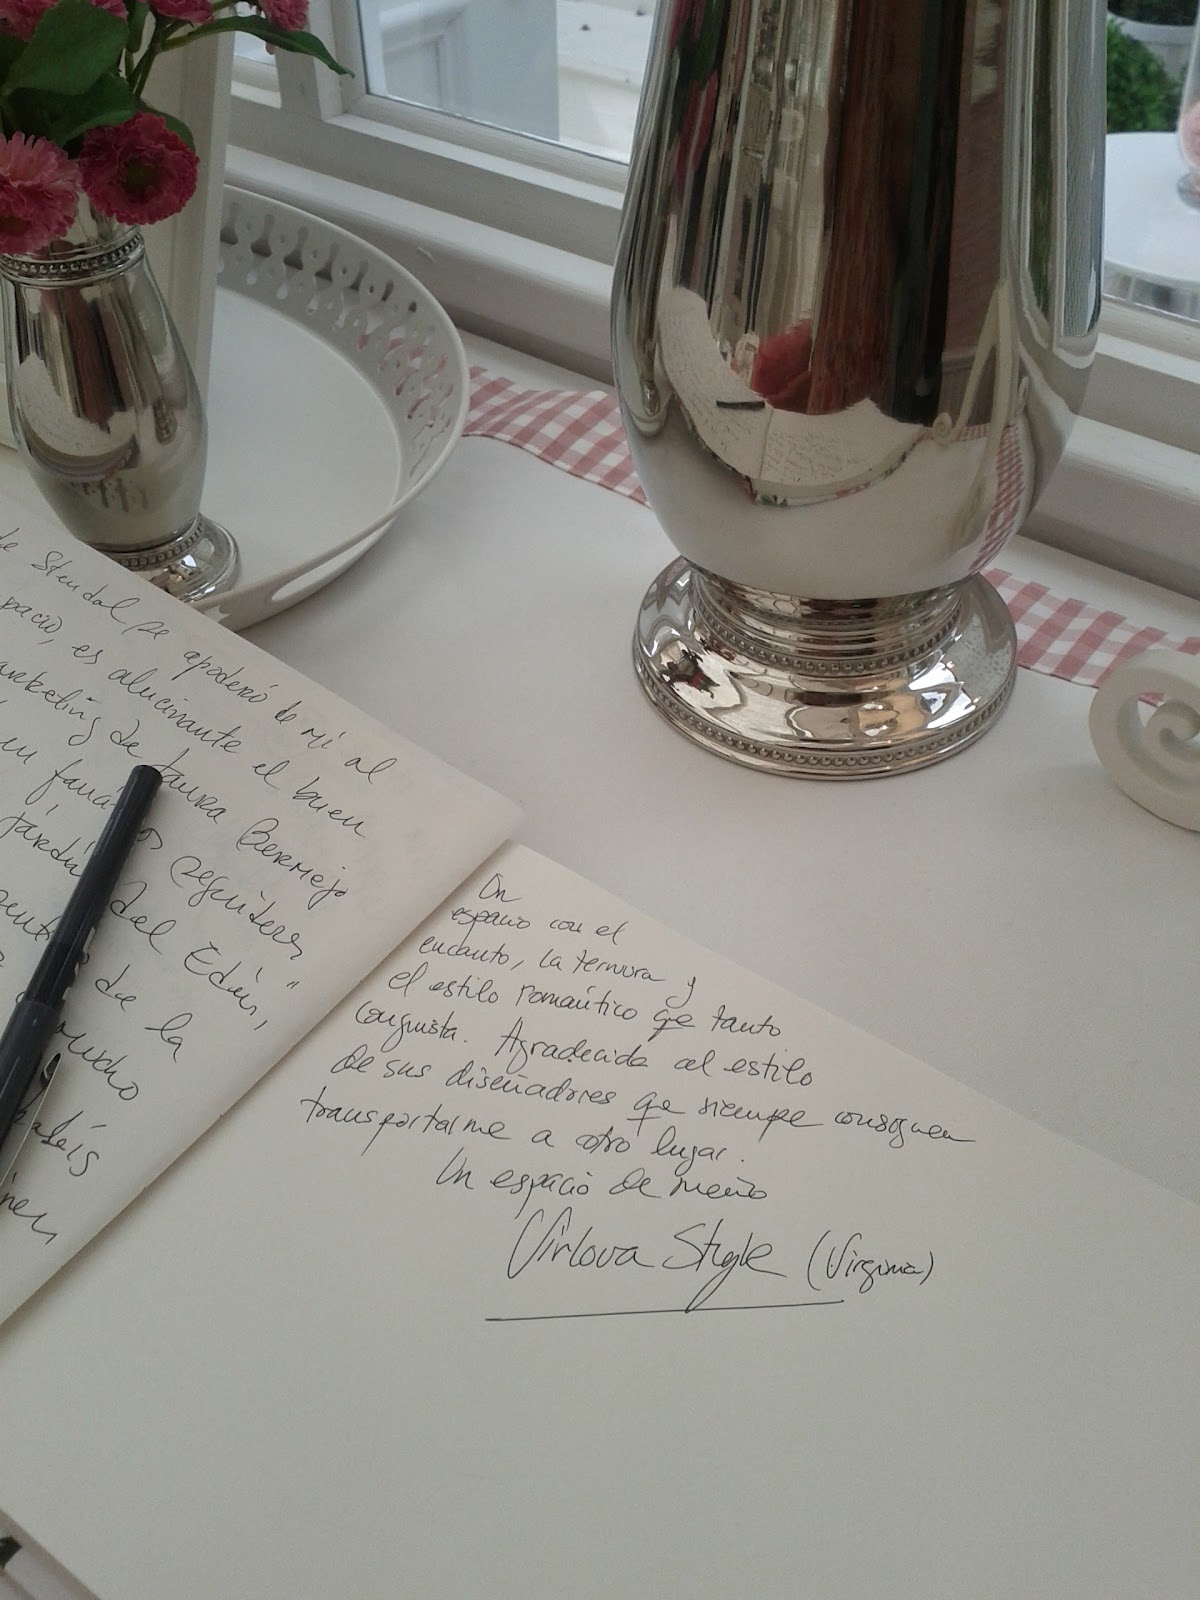 de Stendal se apoderó de mi al
pacio, es alucinante el buen
arketing de Laura Bermejo
en
Jardín del Edén,"
de la
mucho
Un
espacio con el
encanto, la ternura y
el estilo romántico que tanto
conquista. Agradecida al estilo
de sus diseñadores que siempre consiguen
transportarme a otro lugar.
Un espacio de
Virlova Style (Virginia)